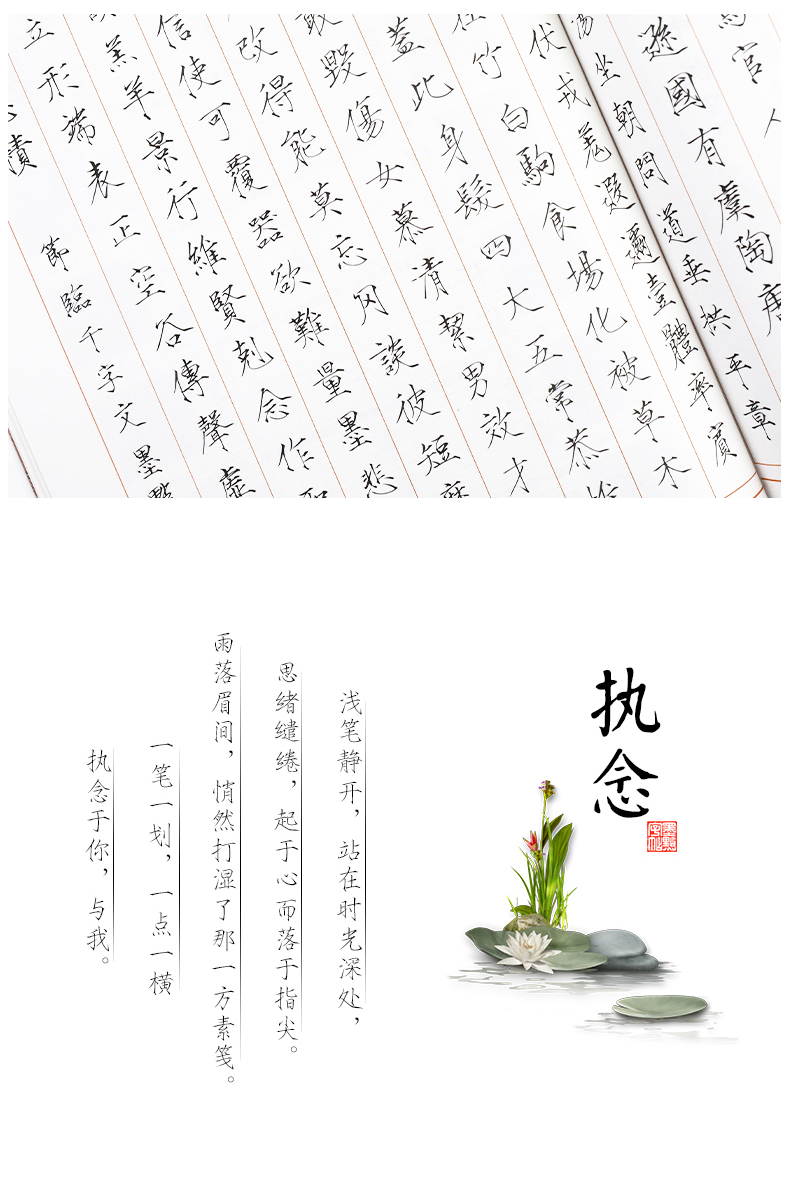 官人
遜國有虞陶唐
湯坐朝問道垂拱平章
伏戎羌遐邇壹體率賓
在竹白駒食場化被草木
蓋此身髮四大五常恭惟
敢毀傷女慕清絜男效才
改得能莫忘罔談彼短靡
信使可覆器欲難量墨悲
羔羊景行維賢剋念作聖
立形端表正空谷傳聲虛
積節臨千字文墨點
执念
墨點字帖
浅笔静开，站在时光深处，
思绪缱绻，起于心而落于指尖。
雨落眉间，悄然打湿了那一方素笺。
一笔一划，一点一横
执念于你，与我。